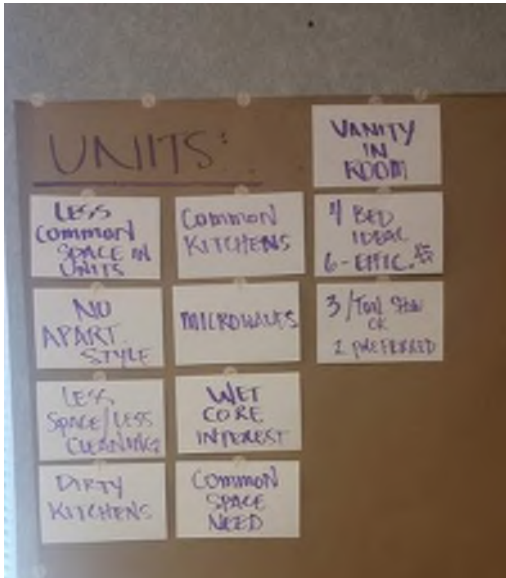 UNITS:
LESS
COMMON
SPACE IN
UNITS
NO
APART.
STYLE
LESS
SPACE/LESS
CLEANING
DIRTY
KITCHENS
COMMON
KITCHENS
MICROWAVES
WET
CORE
INTEREST
COMMON
SPACE
NEED
VANITY
IN
ROOM
4 BED
IDEAL
6-EFFIC.
3/
OK
2 PREFERRED